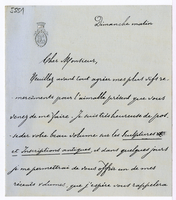 Dimanche matin
Cher Monsieur,
Veuillez avant tout agréer mes plus vifs re-
merciments pour l'aimable présent que vous
venez de me faire. Je suis très heureux de pos-
séder votre beau volume sur les Sculptures
et Inscriptions antiques, et dans quelques jours
je me permettrai de vous offrir un de mes
récents volumes, que j'espère vous rappelera